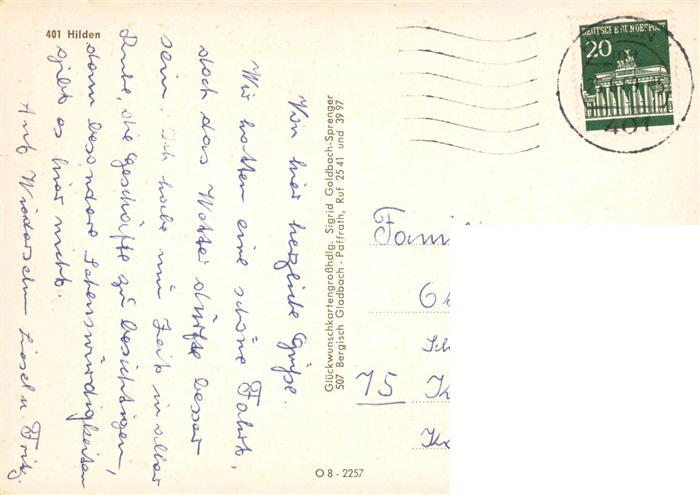 401 Hilden
Von hier herzliche Grüße.
Wir hatten eine schöne Fahrt,
doch das Wetter dürfte besser
sein. Ich habe nun Zeit in aller
Ruhe, die Geschäfte zu besichtigen,
denn besondere Sehenswürdigkeiten
gibt es hier nicht.
Auf Wiedersehn Liesel u Fritz.
Glückwunschkartengroßhdlg. Sigrid Goldbach-Sprenger
507 Bergisch Gladbach - Paffrath, Ruf 25 41 und 39 97
O 8 - 2257
DEUTSCHE BUNDESPOST
20
401
Famili
75